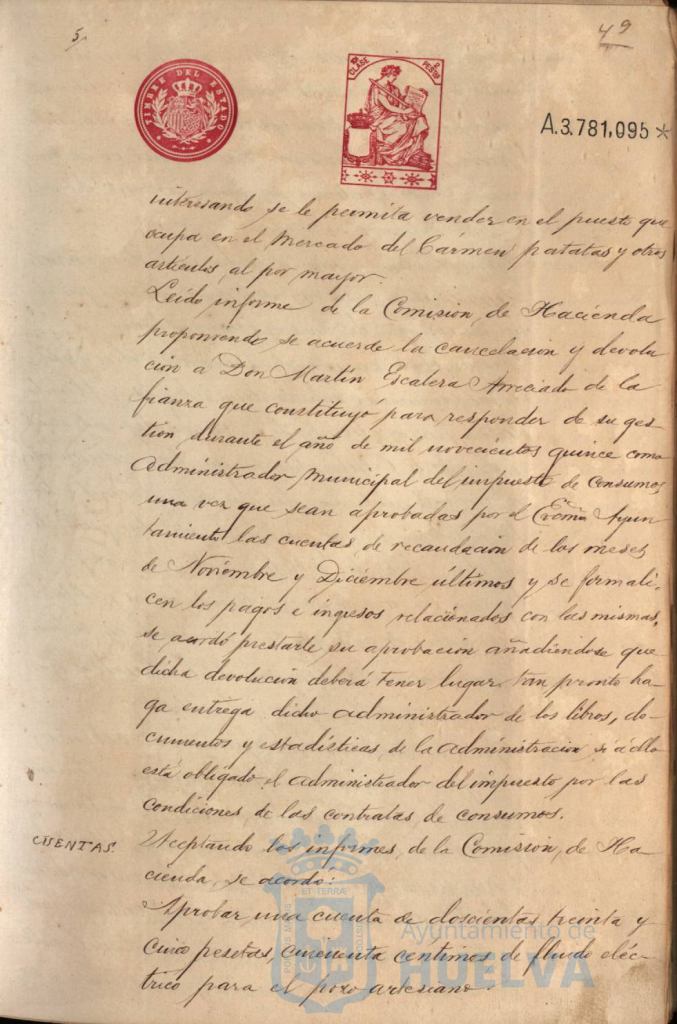 5
49
TIMBRE DEL ESTADO
CLASE
PESTS
A.3.781,095*
interesando se le permita vender en el puesto que
ocupa en el Mercado del Cármen patatas y otros
artículos al por mayor.
Leido informe de la Comisión de Hacienda
proponiendo se acuerde la cancelación y devolu
ción a Don Martín Escalera Arreciado de la
fianza que constituyó para responder de su ges-
tión durante el año de mil novecientos quince como
Administrador Municipal del impuesto de Consumos
una vez que sean aprobadas por el Excmo Ayun
tamiento las cuentas de recaudación de los meses
de Noviembre y Diciembre últimos y se formali-
cen los pagos e ingresos relacionados con las mismas,
se acordó prestarle su aprobación añadiendose que
dicha devolución deberá tener lugar tan pronto ha-
ga entrega dicho administrador de los libros, do-
cumentos y estadísticas de la administración si a ello
está obligado el administrador del impuesto por las
condiciones de las contratas de consumos.
CUENTAS
Aceptando los informes de la Comisión de Ha-
cienda, se acordó:
Aprobar una cuenta de doscientas treinta y
cinco pesetas, cincuenta centimos de fluido eléc-
trico para el pozo artesiano.
Ayuntamiento de
HUELVA